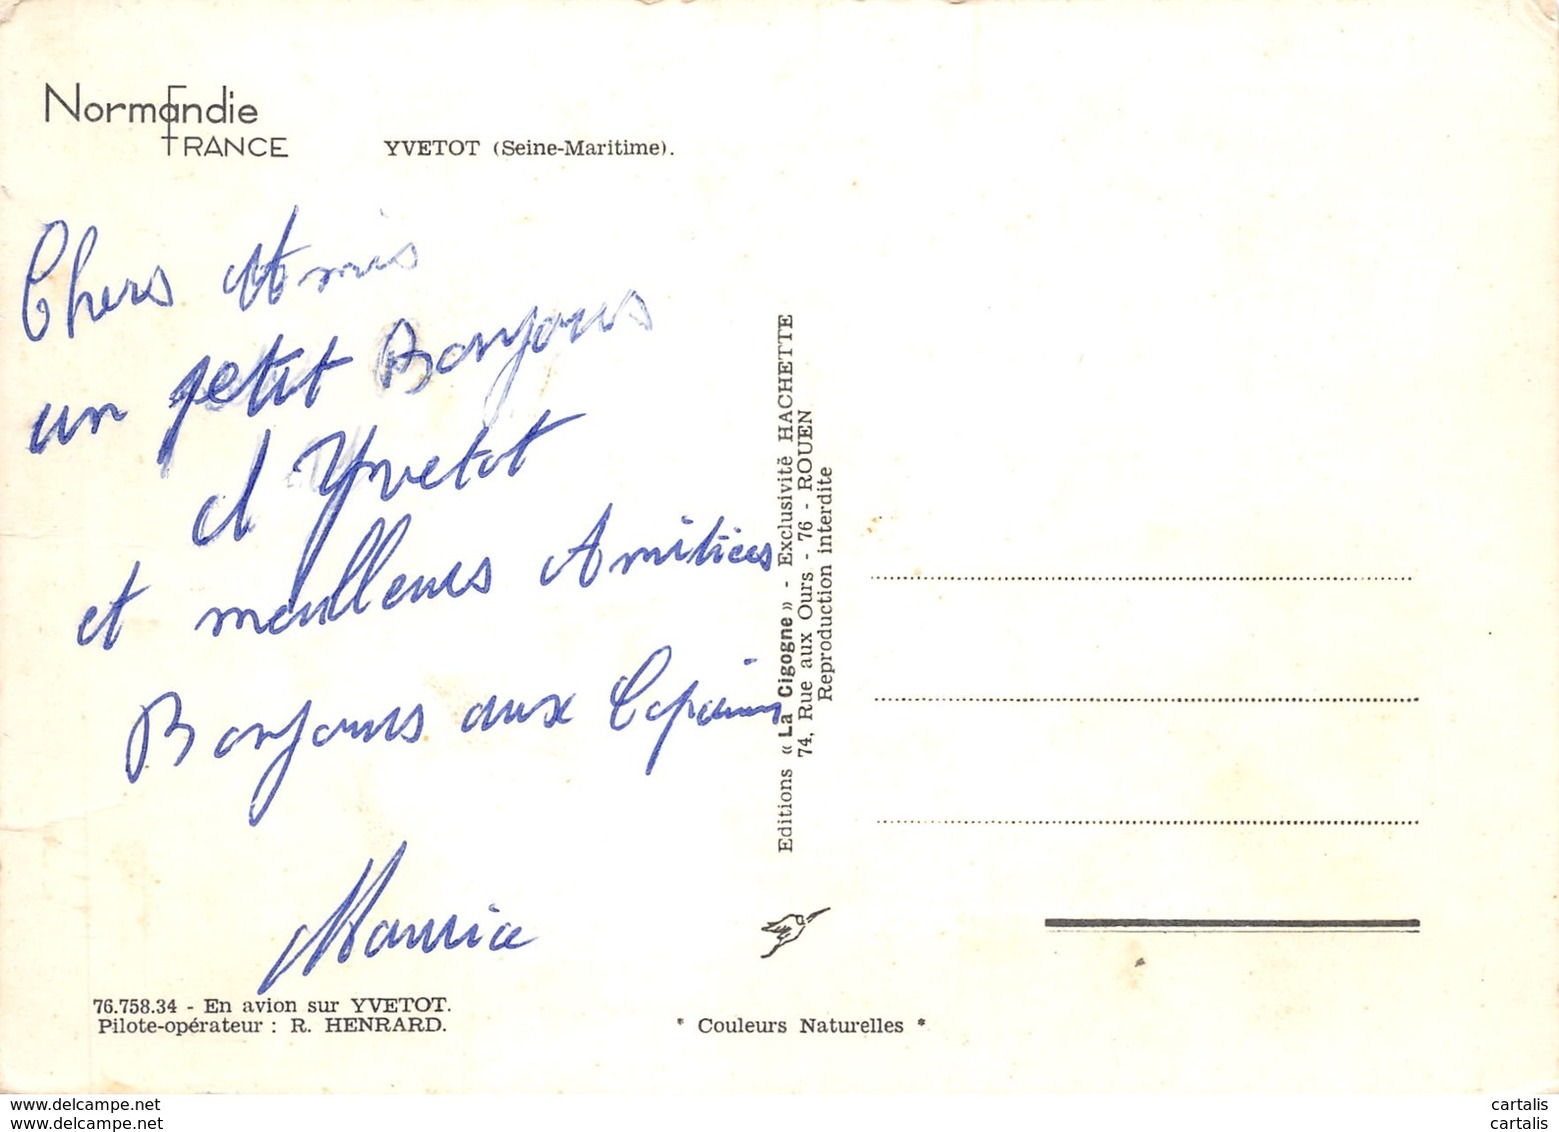 Normandie
FRANCE
YVETOT (Seine-Maritime).
Chers Amis
un petit Bonjour
d Yvetot
et meilleures Amitiées
Bonjours aux Copains
Maurice
76.758.34 - En avion sur YVETOT.
Pilote-opérateur : R. HENRARD.
Editions « La Cigogne » - Exclusivité HACHETTE
74, Rue aux Ours - 76 - ROUEN
Reproduction interdite
* Couleurs Naturelles *
www.delcampe.net
www.delcampe.net
cartalis
cartalis